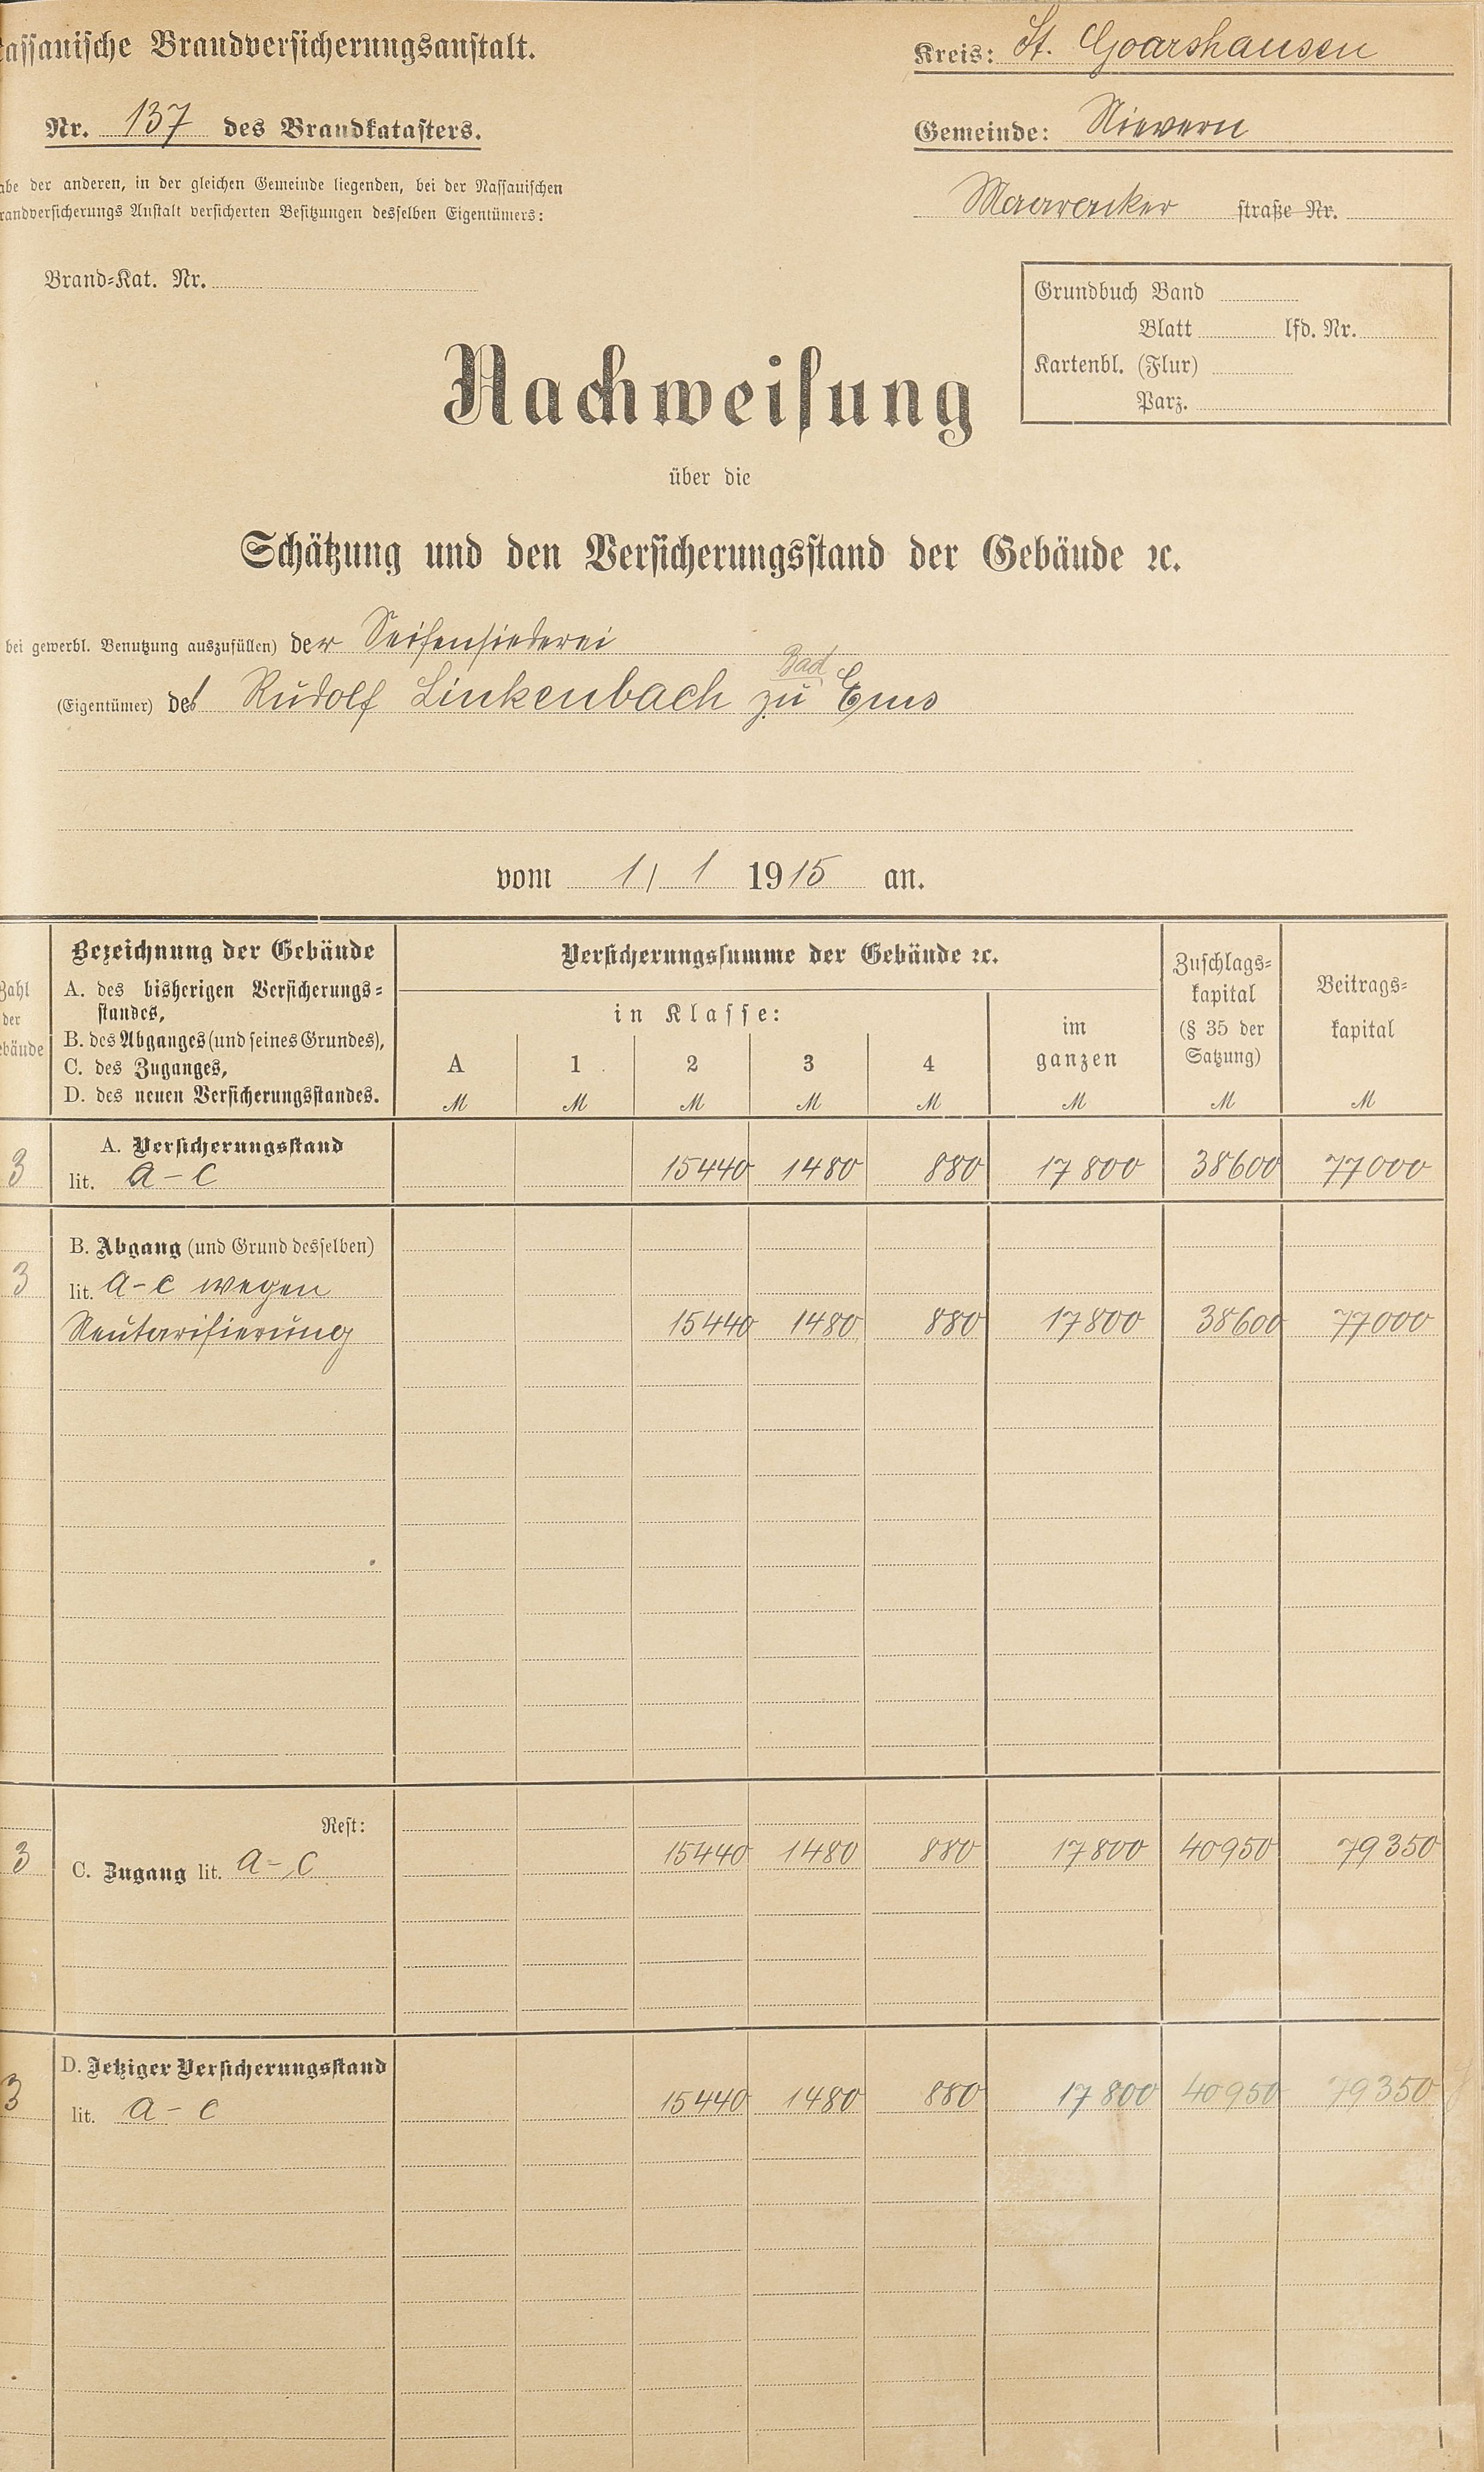 assauische Brandversicherungsanstalt.
Kreis: St. Goarshausen
Nr. 137 des Brandkatasters.
Gemeinde: Nievern
abe der anderen, in der gleichen Gemeinde liegenden, bei der Nassauischen
randversicherungs Anstalt versicherten Besitzungen desselben Eigentümers:
Maaracker straße Nr.
Brand-Kat. Nr.
Grundbuch Band
Blatt lfd. Nr.
Kartenbl. (Flur)
Parz.
Nachweisung
über die
Schätzung und den Versicherungsstand der Gebäude ꝛc.
bei gewerbl. Benutzung auszufüllen) der Seifensiederei
Bad
(Eigentümer) des Rudolf Linkenbach zu Ems
vom 1/ 1 1915 an.
Zahl
der
ebäude
Bezeichnung der Gebäude
A. des bisherigen Versicherungs-
standes,
B. des Abganges (und seines Grundes),
C. des Zuganges,
D. des neuen Versicherungsstandes.
Versicherungssumme der Gebäude ꝛc.
in Klasse:
A 1 2 3 4
M M M M M
im
ganzen
M
Zuschlags-
kapital
(§ 35 der
Satzung)
M
Beitrags-
kapital
M
A. Versicherungsstand
3 lit. a-c 15440 1480 880 17800 38600 77000
B. Abgang (und Grund desselben)
3 lit. a-c wegen
Neutarifierung 15440 1480 880 17800 38600 77000
Rest:
3 C. Zugang lit. a-c 15440 1480 880 17800 40950 79350
D. Jetziger Versicherungsstand
3 lit. a-c 15440 1480 880 17800 40950 79350